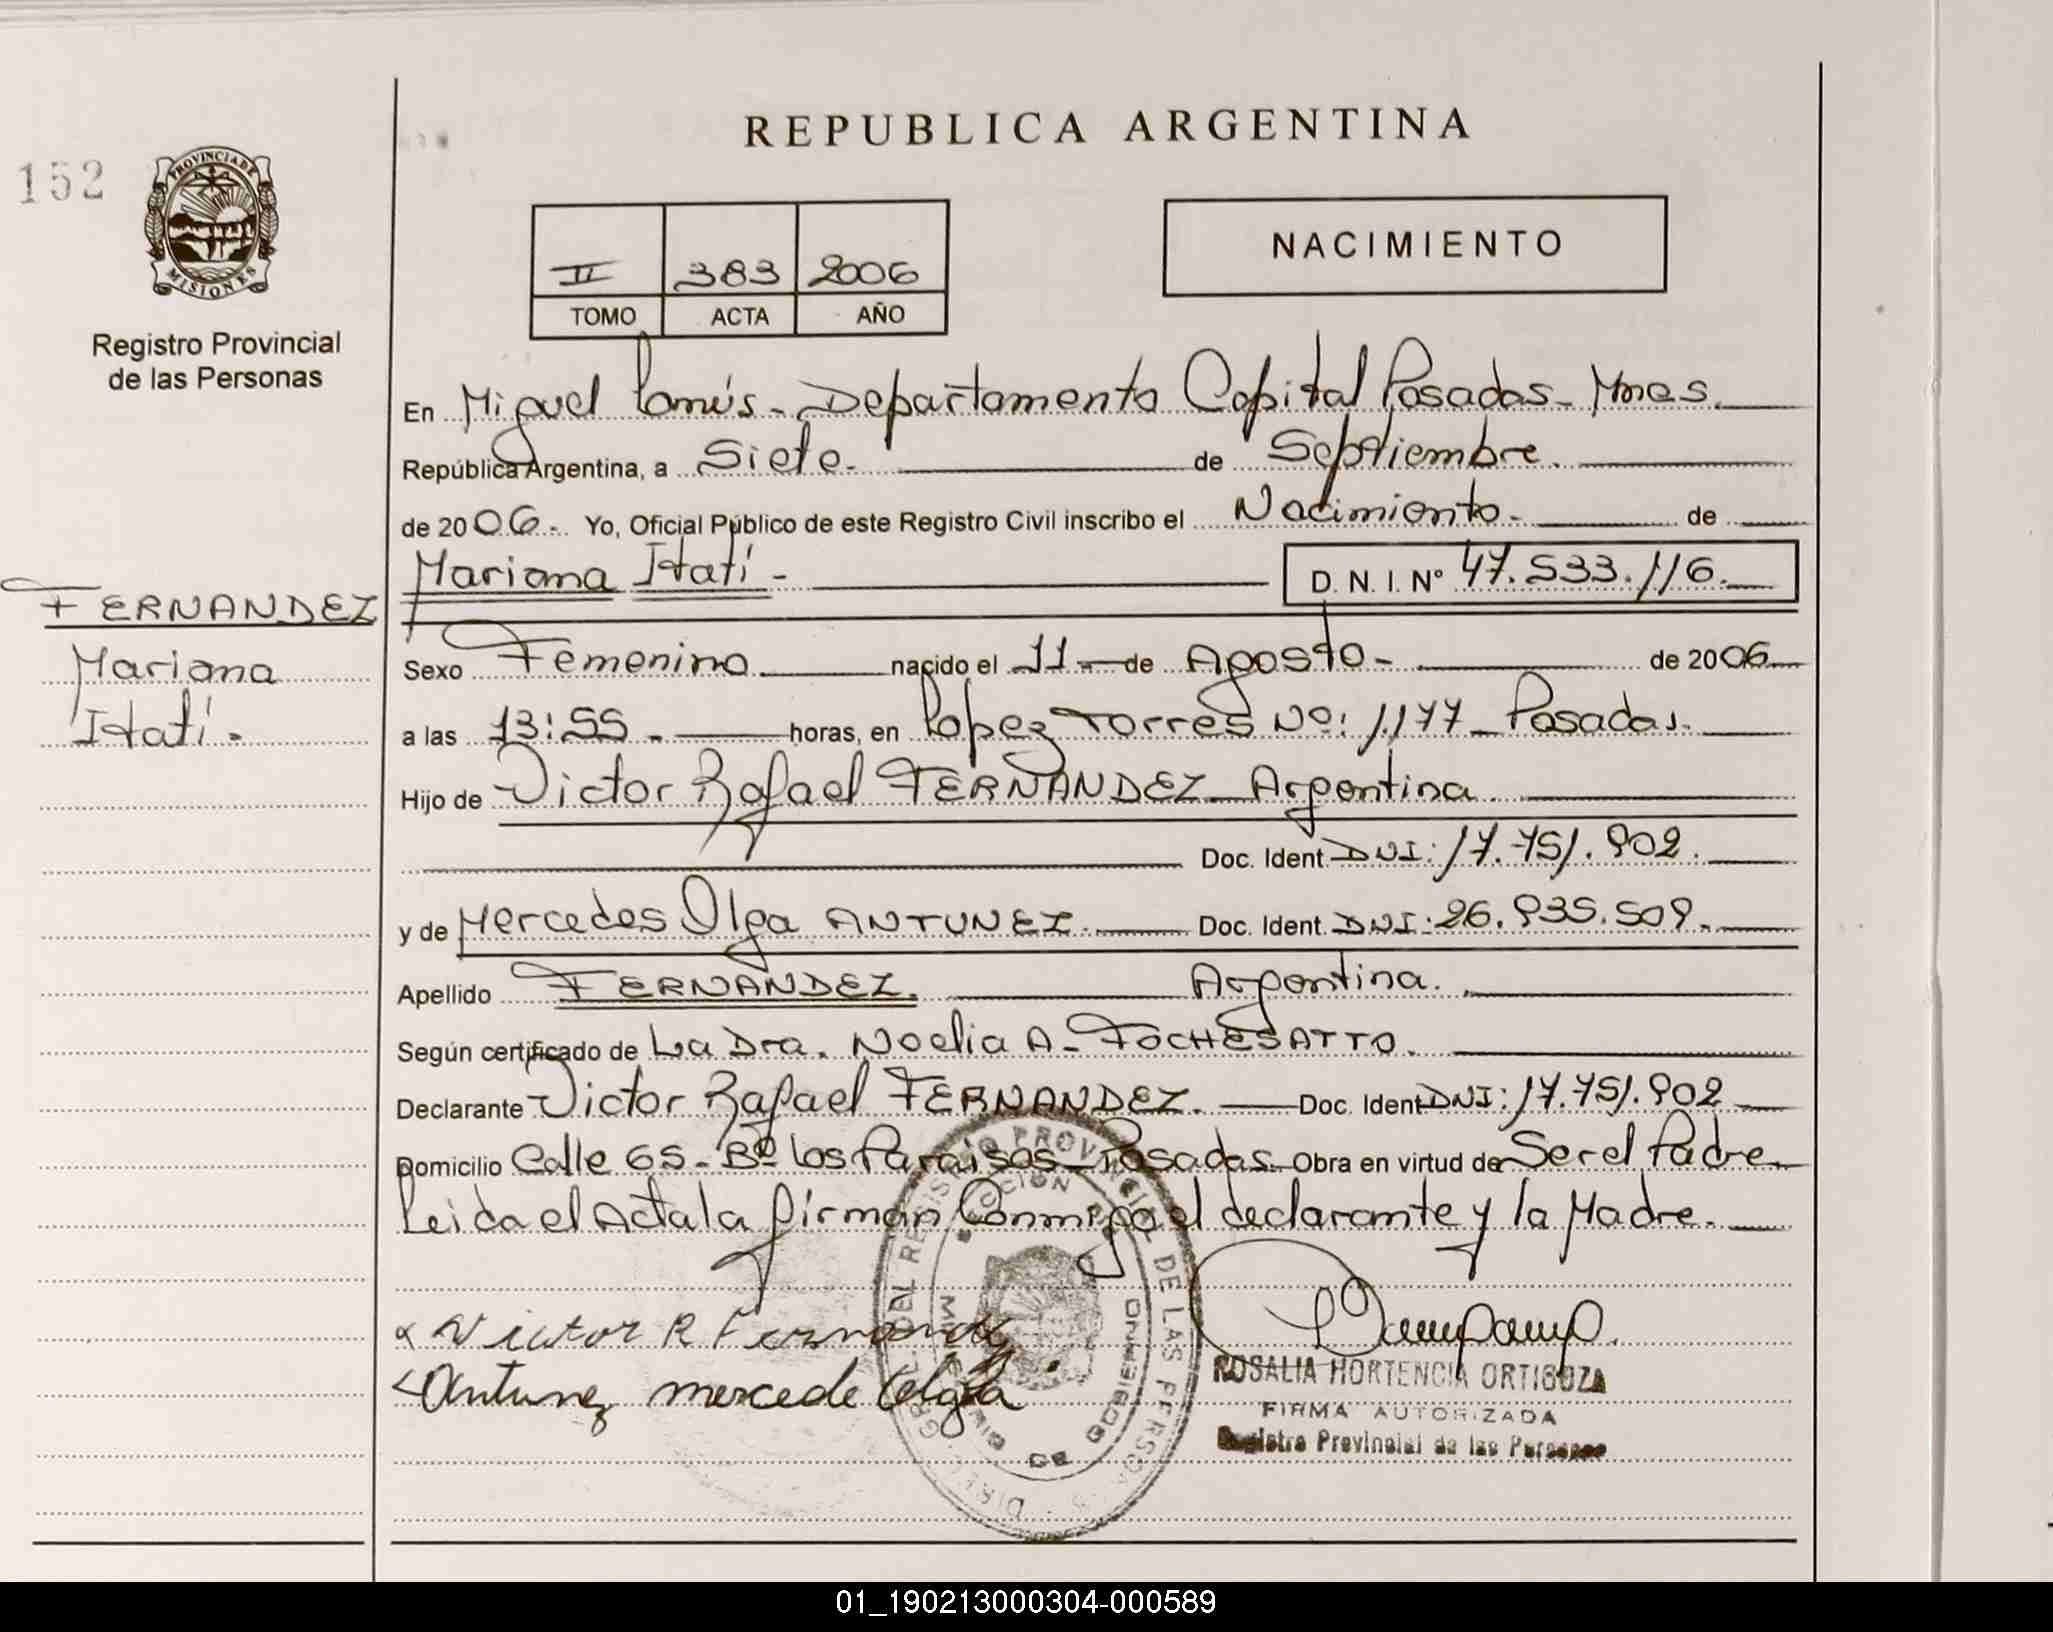 REPUBLICA ARGENTINA
152
PROVINCIA DE
MISIONES
Registro Provincial
de las Personas
II 383 2006
TOMO ACTA AÑO
NACIMIENTO
En Miguel Lanús - Departamento Capital Posadas - Mnes.
República Argentina, a Siete. de Septiembre.
de 2006.- Yo, Oficial Público de este Registro Civil inscribo el Nacimiento - de
Mariana Itatí - D. N. I. Nº 47.533.116.
FERNANDEZ
Mariana
Itatí.
Sexo Femenino nacido el 11 - de Agosto - de 2006
a las 13:55 - horas, en Lopez Torres Nº: 1.177 - Posadas.
Hijo de Victor Rafael FERNANDEZ - Argentina
Doc. Ident. DNI: 17.751.902.
y de Mercedes Olga ANTUNEZ. Doc. Ident. DNI: 26.935.509.
Apellido FERNANDEZ. Argentina.
Según certificado de La Dra. Noelia A. FOCHESATTO.
Declarante Victor Rafael FERNANDEZ. Doc. Ident. DNI: 17.751.902
Domicilio Calle 65 - Bº Los Paraisos - Posadas - Obra en virtud de Ser el Padre
Leida el Acta la firman Conmigo el declarante y la Madre.
Victor R Fernandez
Antunez mercede Olga
DEL REGISTRO PROVINCIAL DE LAS PERSONAS
DE GOBIERNO
ROSALIA HORTENCIA ORTIGOZA
FIRMA AUTORIZADA
Registro Provincial de las Personas
01_190213000304-000589